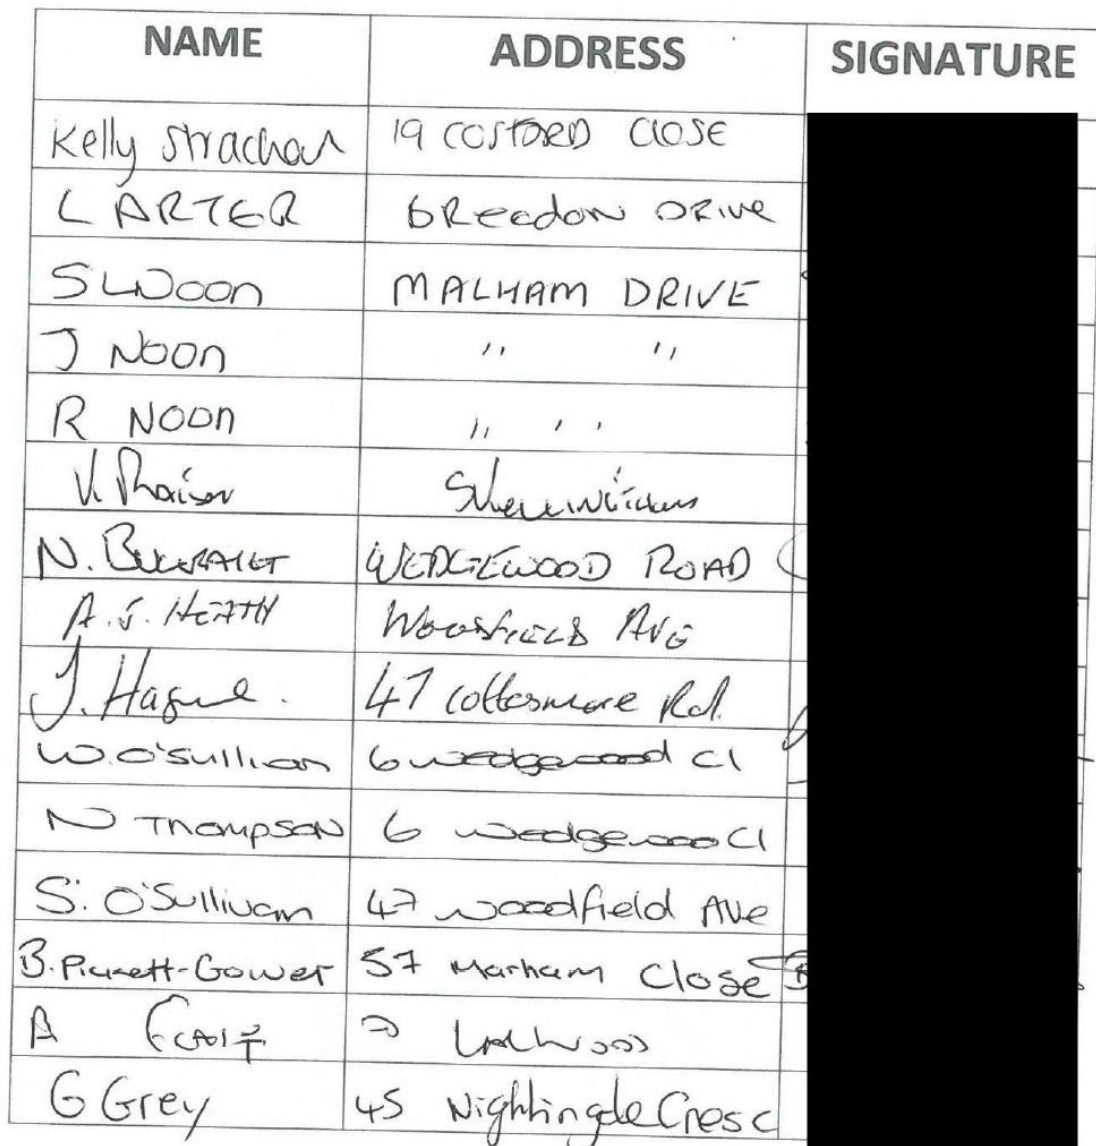 NAME ADDRESS SIGNATURE
Kelly Strachan 19 COSFORD CLOSE
L ARTER BReedon DRive
S L Noon MALHAM DRIVE
J Noon " "
R Noon " "
V.
N. WEDGEWOOD ROAD
A.J. HEATH WOODFIELD AVE
J. Hague. 47 Cottesmore Rd.
W. O'Sullivan 6 wedgewood Cl
N Thompson 6 wedgewood Cl
S. O'Sullivan 47 woodfield Ave
B. Pickett-Gower 57 Marham Close
A 7
G Grey 45 Nightingale Cresc